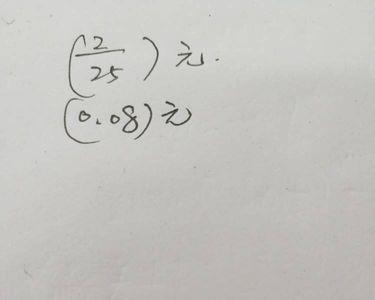 (12/25)元.
(0.08)元